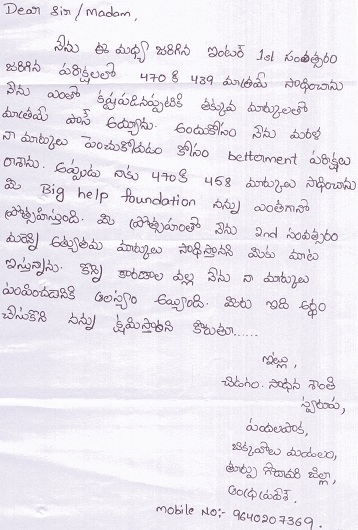 Dear Sir/Madam,
నేను ఈ మధ్య జరిగిన ఇంటర్ 1st సంవత్సరం
జరిగిన పరీక్షలలో 470 కి 439 మాత్రమే సాధించాను
నేను ఎంతో కష్టపడినప్పటికి తక్కువ మార్కులతో
మాత్రమే పాస్ అయ్యాను. అందుకోసం నేను మరల
నా మార్కులు పెంచుకోవడం కోసం betterment పరీక్షలు
రాశాను. అప్పుడు నాకు 470 కి 458 మార్కులు సాధించాను
మీ Big help foundation నన్ను ఎంతగానో
ప్రోత్సహిస్తుంది. మీ ప్రోత్సాహంతో నేను 2nd సంవత్సరం
మరిన్ని అత్యుత్తమ మార్కులు సాధిస్తానని మీకు మాట
ఇస్తున్నాను. కొన్ని కారణాల వల్ల నేను నా మార్కులు
పంపించడానికి ఆలస్యం అయ్యింది. మీరు ఇది అర్థం
చేసుకొని నన్ను క్షమిస్తారని కోరుతూ......
ఇట్లు,
చిడగం. సాధన శాంతి
స్వరూప,
పందలపాక,
బిక్కవోలు మండలం,
తూర్పు గోదావరి జిల్లా,
ఆంధ్రప్రదేశ్.
mobile No:- 9640207369.